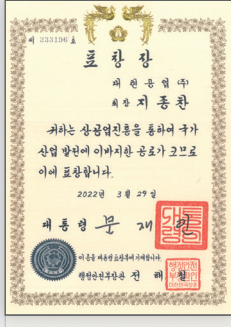 제 333196 호
표창장
대원공업(주)
회장 지종찬
귀하는 상공업진흥을 통하여 국가
산업 발전에 이바지한 공로가 크므로
이에 표창합니다.
2022년 3월 29일
대통령 문재인
이 증을 대통령 표창부에 기재합니다.
행정안전부장관 전해철